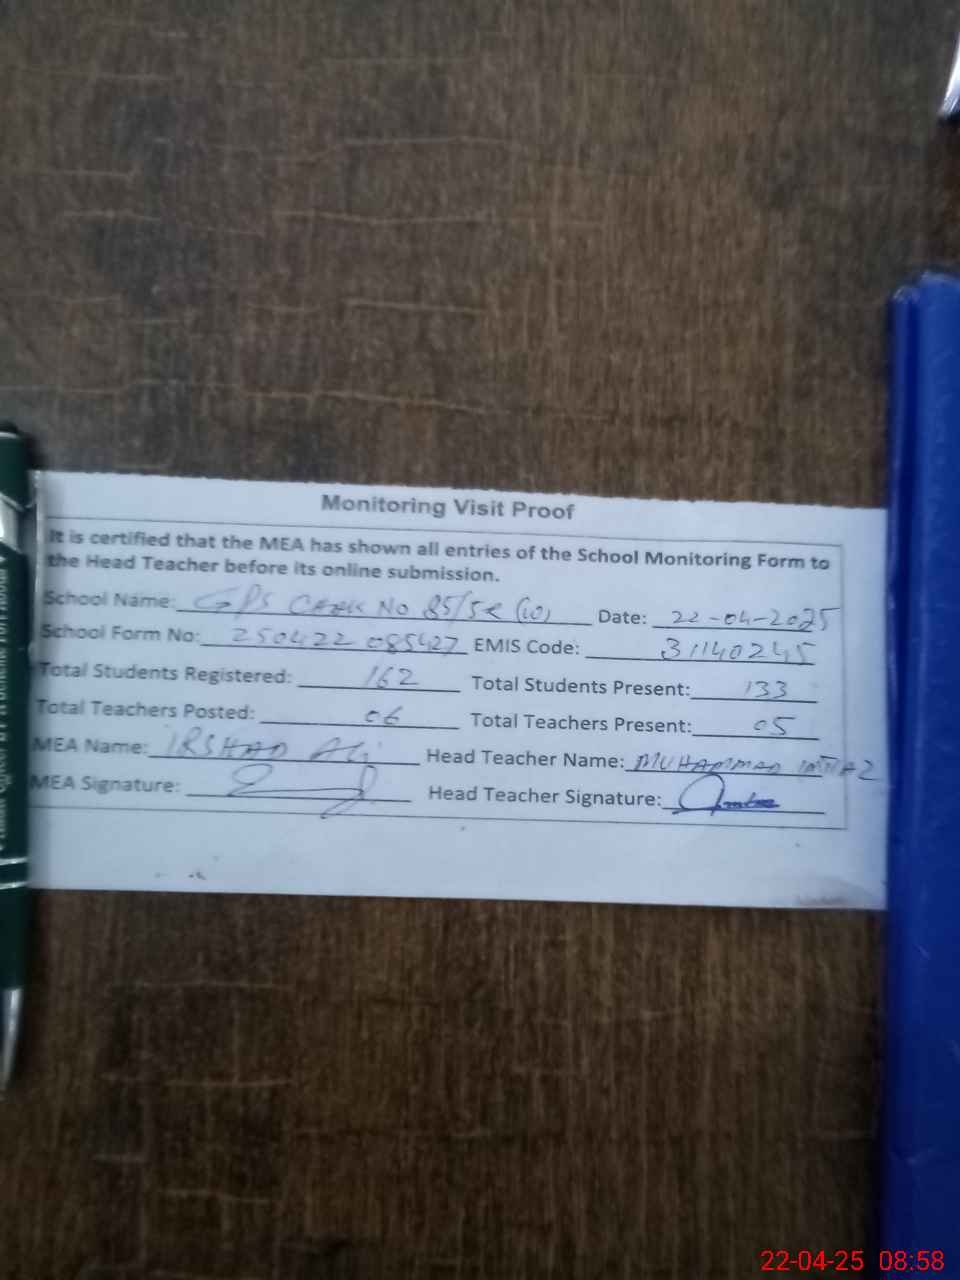 Monitoring Visit Proof
It is certified that the MEA has shown all entries of the School Monitoring Form to
the Head Teacher before its online submission.
School Name: GPS Chak No 85/5R (10) Date: 22-04-2025
School Form No: 250422 085427 EMIS Code: 31140245
Total Students Registered: 162 Total Students Present: 133
Total Teachers Posted: 06 Total Teachers Present: 05
MEA Name: IRSHAD Ali Head Teacher Name: MUHAMMAD
MEA Signature: Head Teacher Signature:
22-04-25 08:58